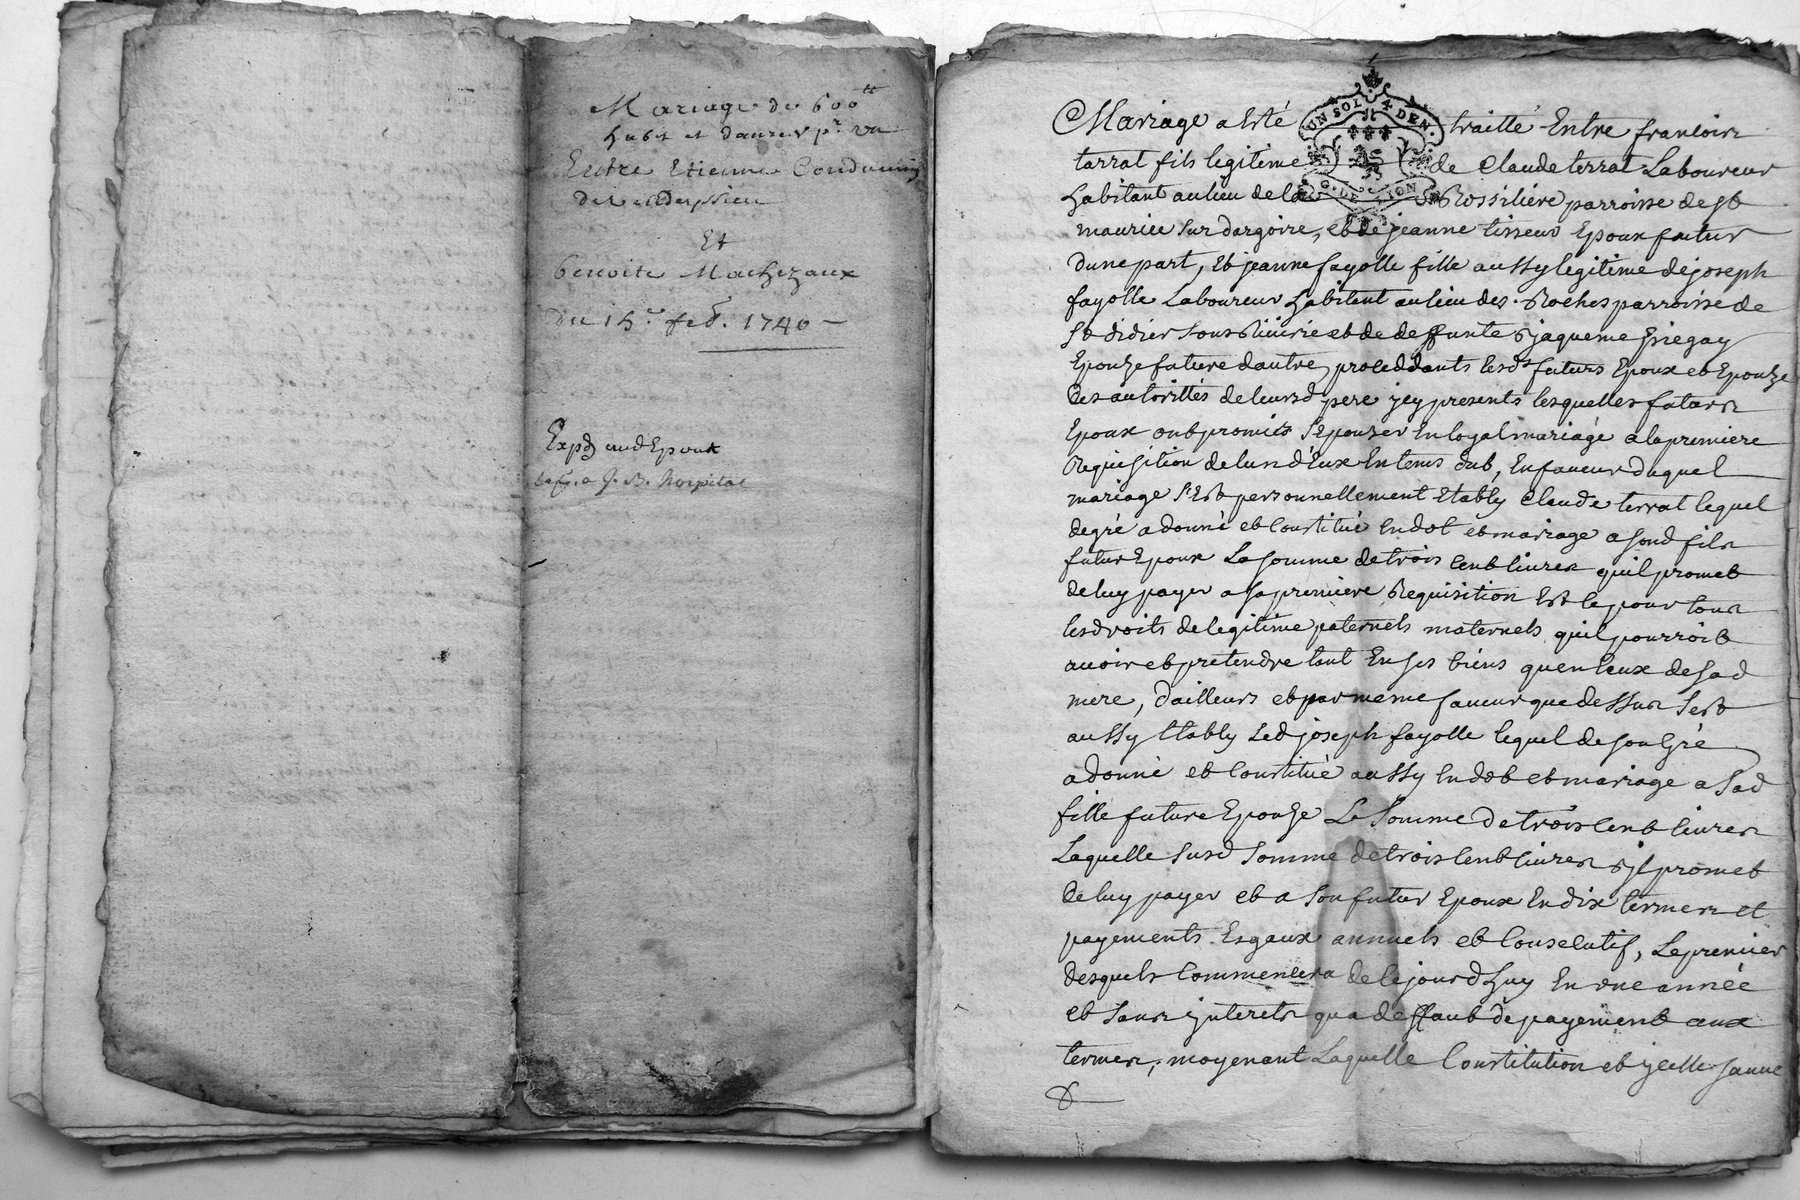 Mariage de 600tt
Entre Etienne Condamin
Et
Benoite Machezaux
du 15e feb. 1740
Expd aud Epoux
UN SOL 4 DEN.
G. DE LION
Mariage a Esté traitté Entre francois
tarrat fils legitime de Claude terrat Laboureur
habitant au lieu de la Rossiliere parroisse de st
maurice sur dargoire, et de jeanne tisseur Epoux futur
dune part, Et jeanne fayolle fille aussy legitime de joseph
fayolle Laboureur habitant au lieu des Roches parroisse de
st didier sous Riverie et de deffunte jaqueme
Epouze future dautre, proceddants lesds futurs Epoux et Epouze
des autorittés de leursd pere jcy presents lesquelles futurs
Epoux ont promis sepouzer En loyal mariage a la premiere
Requisition de lun dEux En tems dub, En faveur duquel
mariage sEst personnellement Etably Claude terrat lequel
de gré a donné et Constitué En dot et mariage a sond fils
futur Epoux La somme de trois Cent livres quil promet
de luy payer a sa premiere Requisition Et le pour tous
les droits de legitime paternels maternels quil pourroit
avoir et pretendre tant En ses biens quen Ceux de sad
mere, dailleurs et par meme faveur que dessus sest
aussy Etably Led joseph fayolle lequel de son Gré
a donné et Constitué aussy En dot et mariage a sad
fille future Epouze La somme de trois Cent livres
Laquelle susd somme de trois Cent livres jl promet
de luy payer et a son futur Epoux En dix termes et
payements Esgaux annuels et Consecutif, Le premier
desquels Commencera de Ce jourdhuy En une année
et sans jnterets qua deffaut de payement aux
termes, moyenant Laquelle Constitution et jcelle